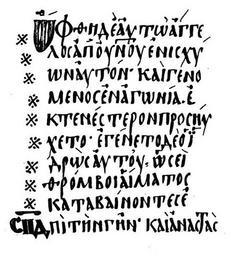 ὤφθη δὲ αὐτῶ ἄγγε
※ λος ἀπ οὐνοῦ ἐνισχύ
※ ων αὐτόν· καὶ γενό
※ μενος ἐν ἀγωνία ἐ
※ κτενέστερον προσηύ
※ χετο· ἐγένετο δὲ ὁ ἱ
※ δρὼς αὐτοῦ ὡσεὶ
※ θρόμβοι αἵματος
※ καταβαίνοντες ἐ
CΠΔ πὶ τὴν γῆν· καὶ ἀναστὰς